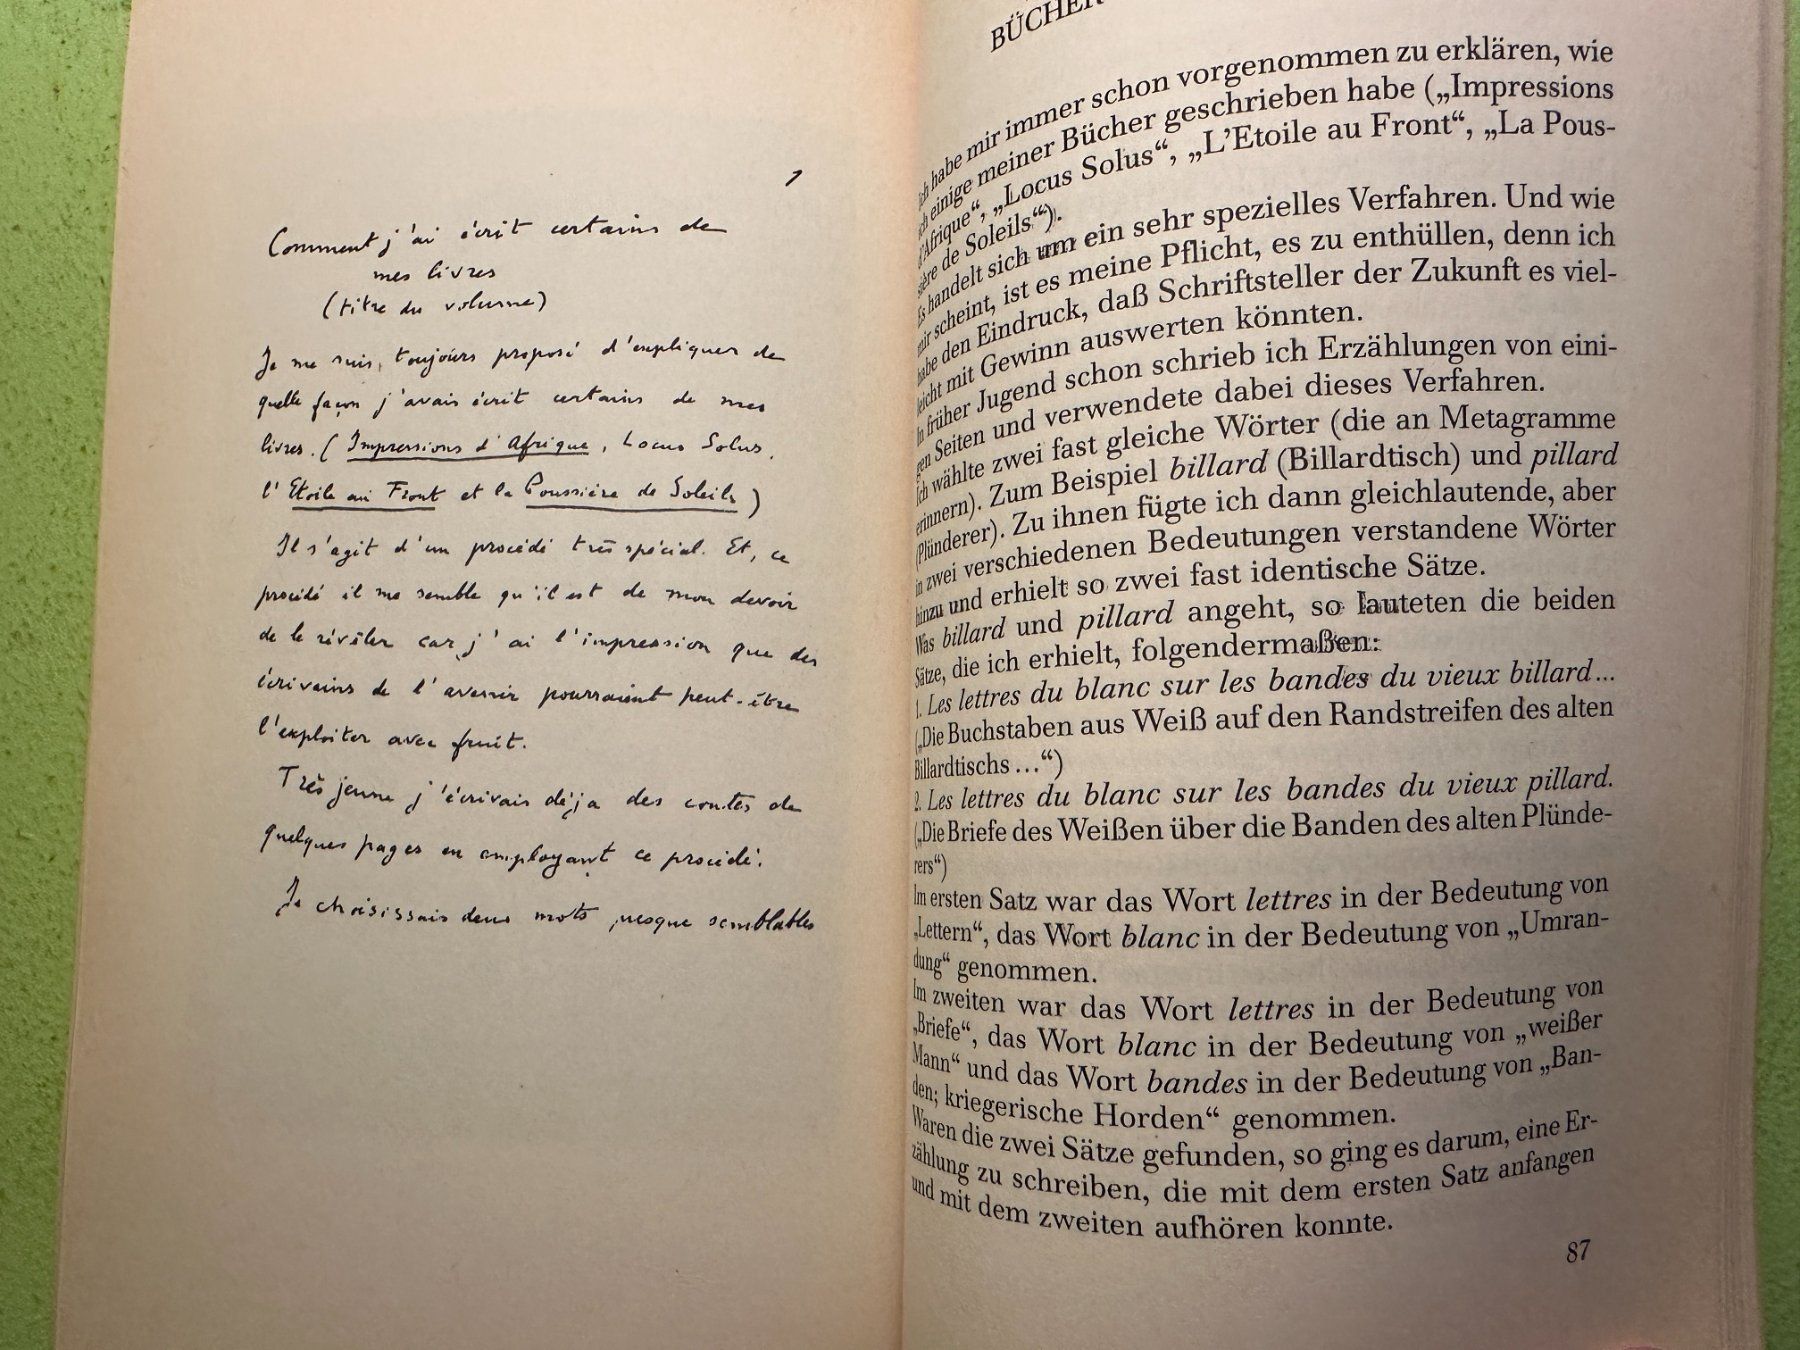 1
Comment j'ai écrit certains de
mes livres
(titre du volume)
Je me suis toujours proposé d'expliquer de
quelle façon j'avais écrit certains de mes
livres. (Impressions d'Afrique, Locus Solus,
l'Etoile au Front et la Poussière de Soleils)
Il s'agit d'un procédé très spécial. Et, ce
procédé il me semble qu'il est de mon devoir
de le révéler car j'ai l'impression que des
écrivains de l'avenir pourraient peut-être
l'exploiter avec fruit.
Très jeune j'écrivais déja des contes de
quelques pages en employant ce procédé.
Je choisissais deux mots presque semblables
BÜCHER
Ich habe mir immer schon vorgenommen zu erklären, wie
ich einige meiner Bücher geschrieben habe („Impressions
d'Afrique“, „Locus Solus“, „L'Etoile au Front“, „La Pous-
sière de Soleils“).
Es handelt sich um ein sehr spezielles Verfahren. Und wie
mir scheint, ist es meine Pflicht, es zu enthüllen, denn ich
habe den Eindruck, daß Schriftsteller der Zukunft es viel-
leicht mit Gewinn auswerten könnten.
In früher Jugend schon schrieb ich Erzählungen von eini-
gen Seiten und verwendete dabei dieses Verfahren.
Ich wählte zwei fast gleiche Wörter (die an Metagramme
erinnern). Zum Beispiel billard (Billardtisch) und pillard
(Plünderer). Zu ihnen fügte ich dann gleichlautende, aber
in zwei verschiedenen Bedeutungen verstandene Wörter
hinzu und erhielt so zwei fast identische Sätze.
Was billard und pillard angeht, so lauteten die beiden
Sätze, die ich erhielt, folgendermaßen:
1. Les lettres du blanc sur les bandes du vieux billard...
(„Die Buchstaben aus Weiß auf den Randstreifen des alten
Billardtischs ...“)
2. Les lettres du blanc sur les bandes du vieux pillard.
(„Die Briefe des Weißen über die Banden des alten Plünde-
rers“)
Im ersten Satz war das Wort lettres in der Bedeutung von
„Lettern“, das Wort blanc in der Bedeutung von „Umran-
dung“ genommen.
Im zweiten war das Wort lettres in der Bedeutung von
„Briefe“, das Wort blanc in der Bedeutung von „weißer
Mann“ und das Wort bandes in der Bedeutung von „Ban-
den; kriegerische Horden“ genommen.
Waren die zwei Sätze gefunden, so ging es darum, eine Er-
zählung zu schreiben, die mit dem ersten Satz anfangen
und mit dem zweiten aufhören konnte.
87